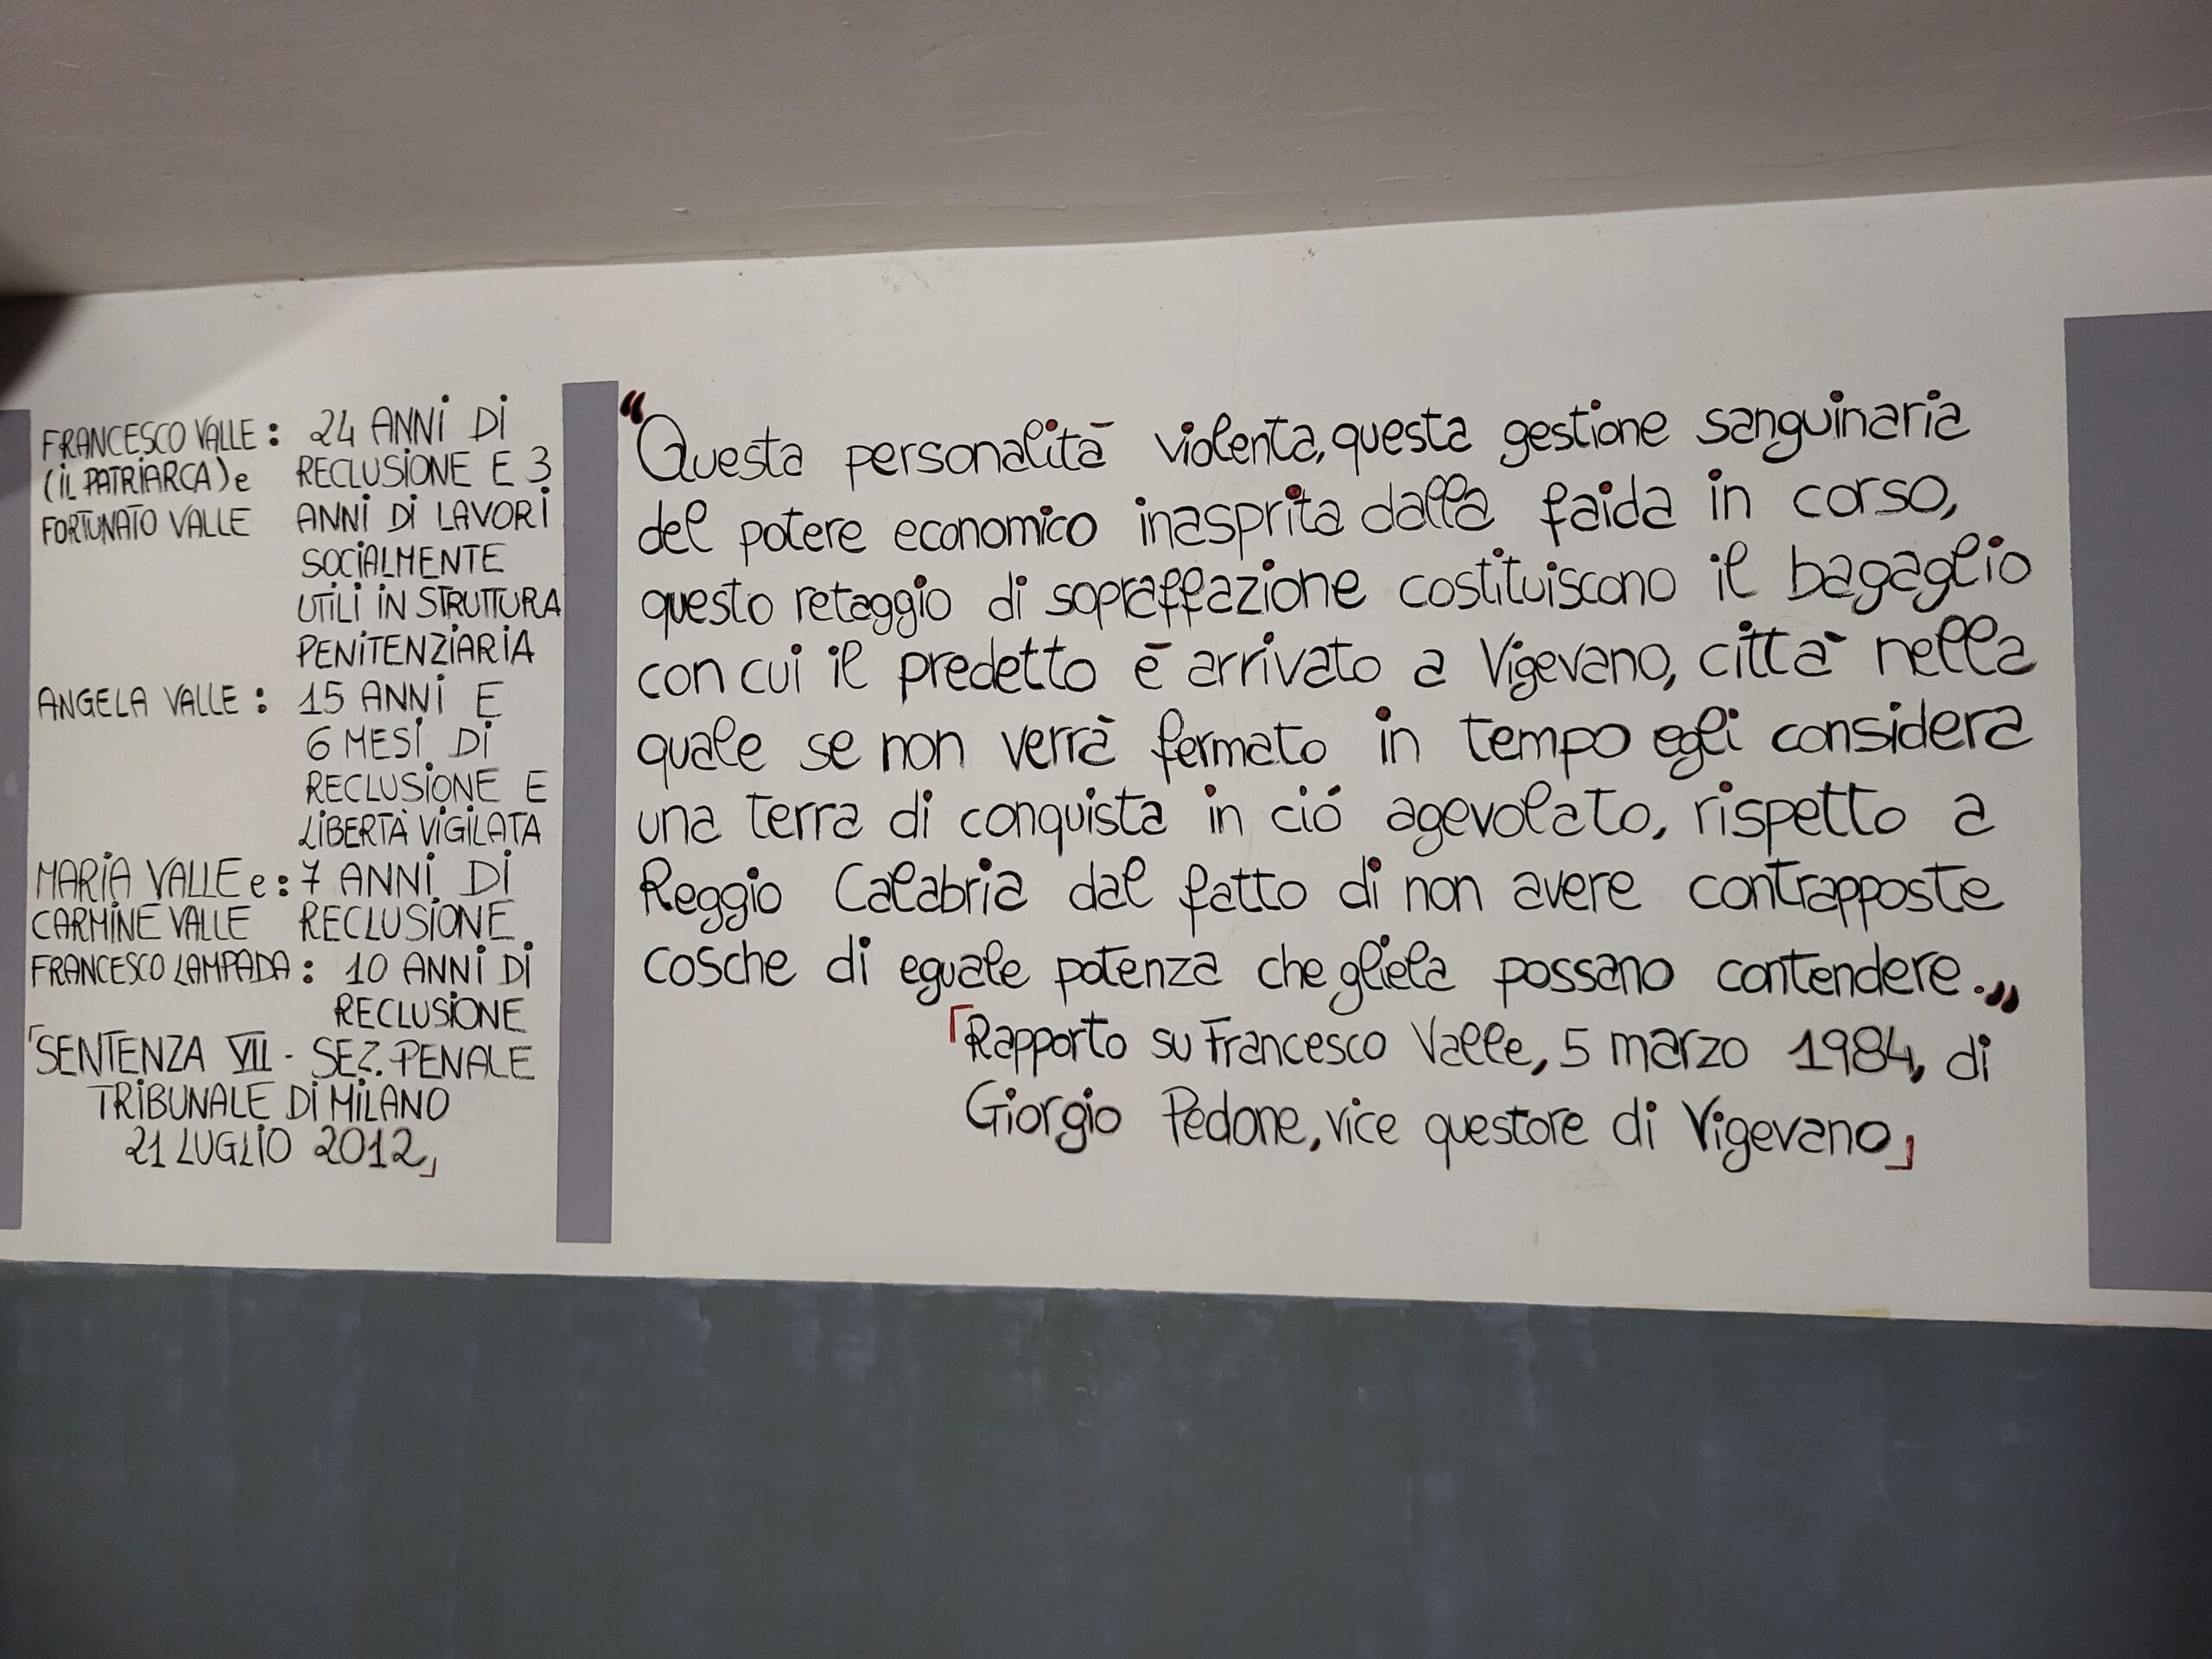 FRANCESCO VALLE : 24 ANNI DI
(IL PATRIARCA) e RECLUSIONE E 3
FORTUNATO VALLE ANNI DI LAVORI
SOCIALMENTE
UTILI IN STRUTTURA
PENITENZIARIA
ANGELA VALLE : 15 ANNI E
6 MESI DI
RECLUSIONE E
LIBERTÀ VIGILATA
MARIA VALLE e : 7 ANNI DI
CARMINE VALLE RECLUSIONE
FRANCESCO LAMPADA : 10 ANNI DI
RECLUSIONE
「SENTENZA VII - SEZ. PENALE
TRIBUNALE DI MILANO
21 LUGLIO 2012」
“Questa personalità violenta, questa gestione sanguinaria
del potere economico inasprita dalla faida in corso,
questo retaggio di sopraffazione costituiscono il bagaglio
con cui il predetto è arrivato a Vigevano, città nella
quale se non verrà fermato in tempo egli considera
una terra di conquista in ció agevolato, rispetto a
Reggio Calabria dal fatto di non avere contrapposte
cosche di eguale potenza che gliela possano contendere.„
「Rapporto su Francesco Valle, 5 marzo 1984, di
Giorgio Pedone, vice questore di Vigevano」